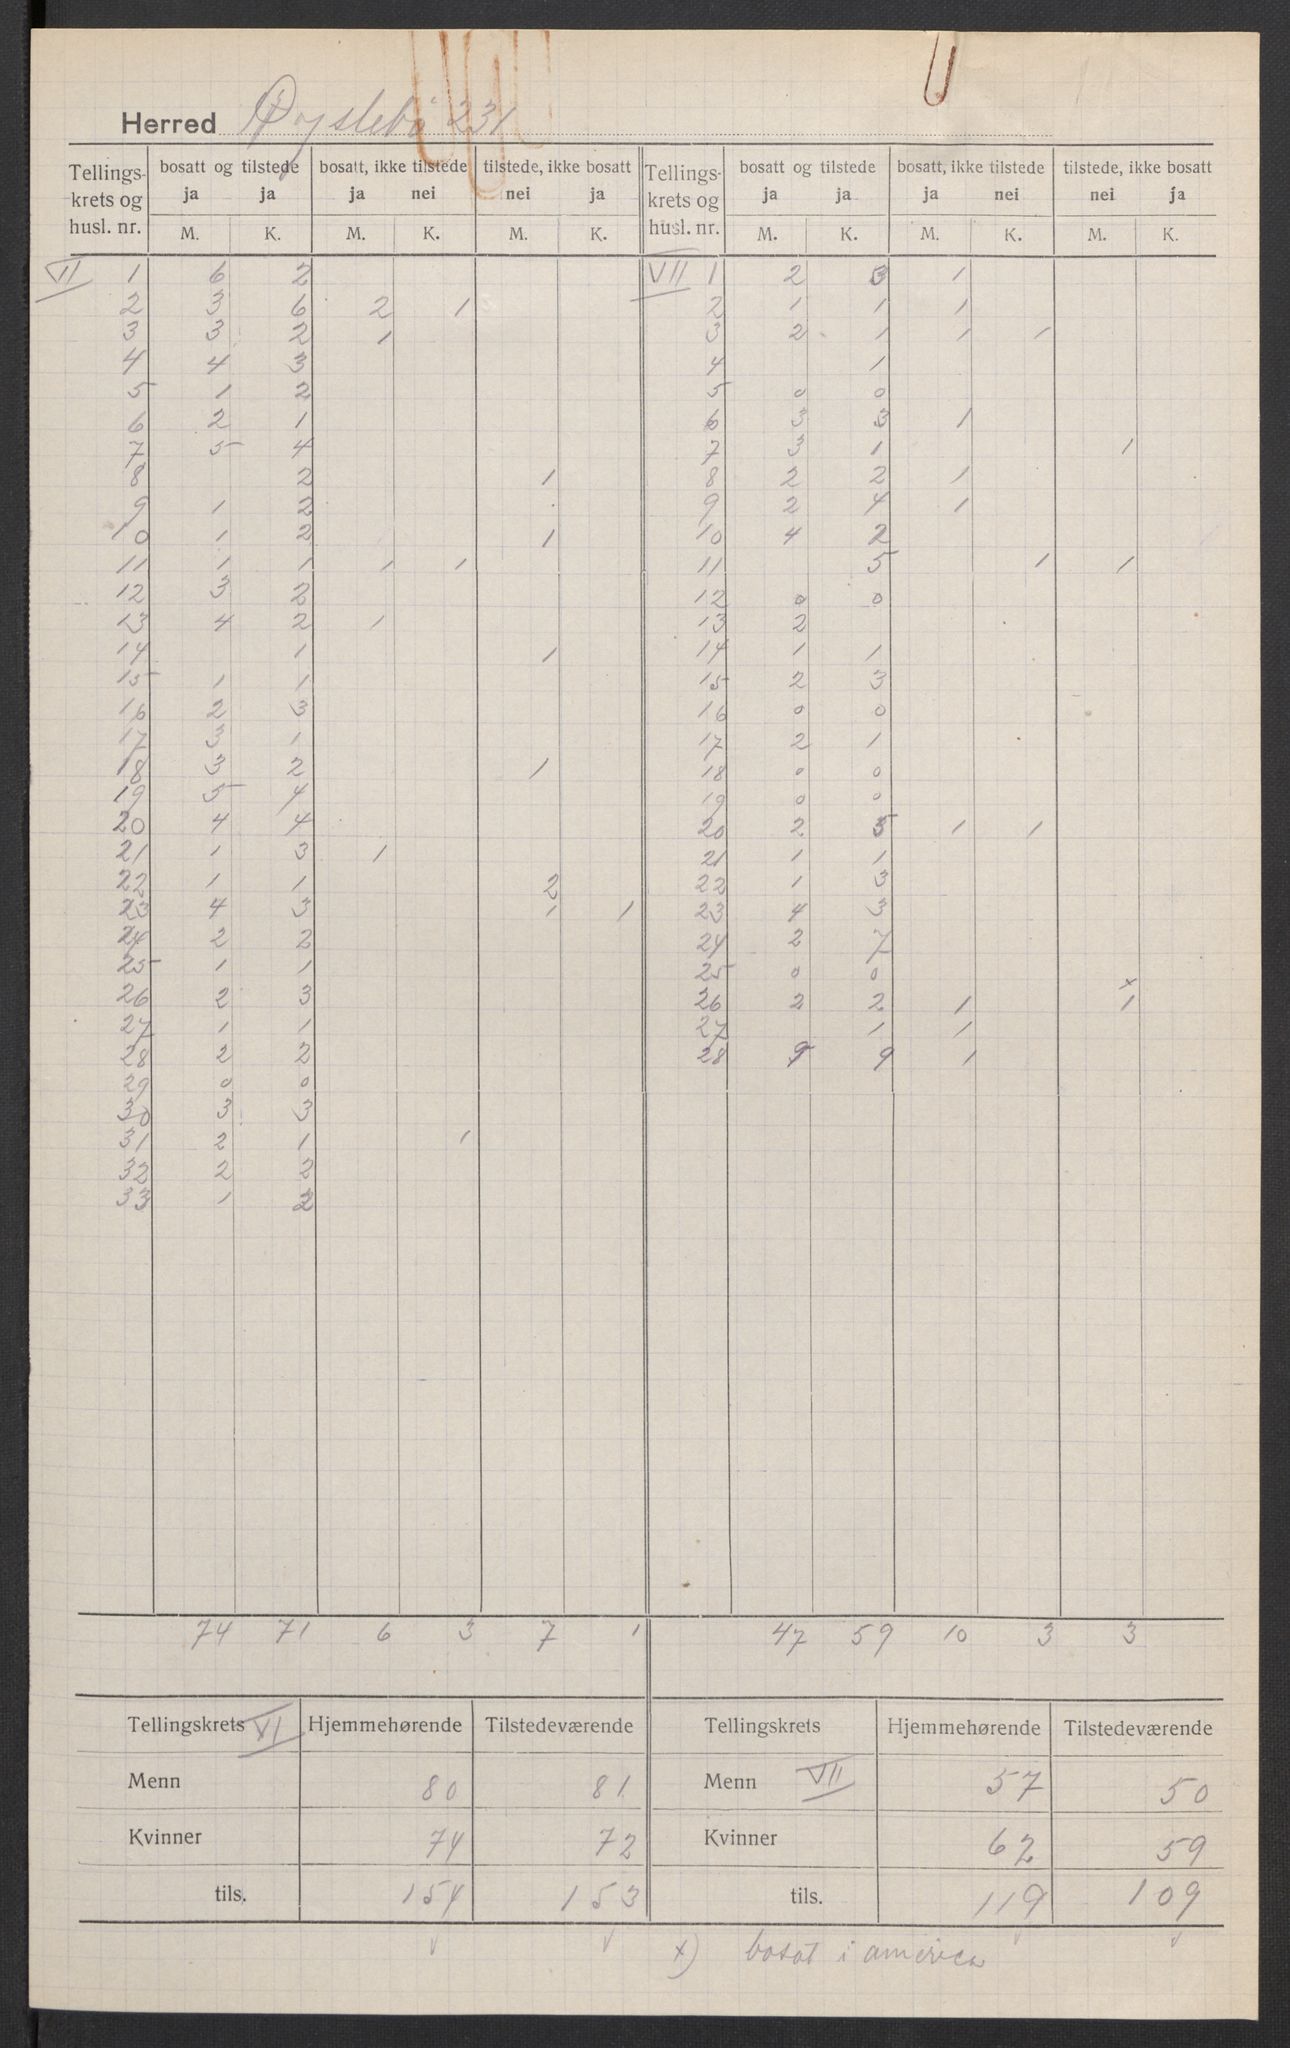 Herred Øyslebø 231
Tellings- bosatt og tilstede bosatt, ikke tilstede tilstede, ikke bosatt Tellings- bosatt og tilstede bosatt, ikke tilstede tilstede, ikke bosatt
krets og ja ja ja nei nei ja krets og ja ja ja nei nei ja
husl. nr. M. K. M. K. M. K. husl. nr. M. K. M. K. M. K.
VI 1 6 2 VII 1 2 3 1
2 3 6 2 1 2 1 1 1
3 3 2 1 3 2 1 1 1
4 4 3 4 1
5 1 2 5 0 0
6 2 1 6 3 3 1
7 5 4 7 3 1 1
8 2 1 8 2 2 1
9 1 2 9 2 4 1
10 1 2 1 10 4 2
11 1 1 1 1 11 5 1 1
12 3 2 12 0 0
13 4 2 1 13 2
14 1 1 14 1 1
15 1 1 15 2 3
16 2 3 16 0 0
17 3 1 17 2 1
18 3 2 1 18 0 0
19 5 4 19 0 0
20 4 4 20 2 5 1 1
21 1 3 1 21 1 1
22 1 1 2 22 1 3
23 4 3 1 1 23 4 3
24 2 2 24 2 7
25 1 1 25 0 0
26 2 3 26 2 2 1 x 1
27 1 1 27 1 1
28 2 2 28 9 9 1
29 0 0
30 3 3
31 2 1 1
32 2 2
33 1 2
74 71 6 3 7 1 47 59 10 3 3
Tellingskrets VI Hjemmehørende Tilstedeværende Tellingskrets Hjemmehørende Tilstedeværende
Menn 80 81 Menn VII 57 50
Kvinner 74 72 Kvinner 62 59
tils. 154 153 tils. 119 109
x) bosat i america